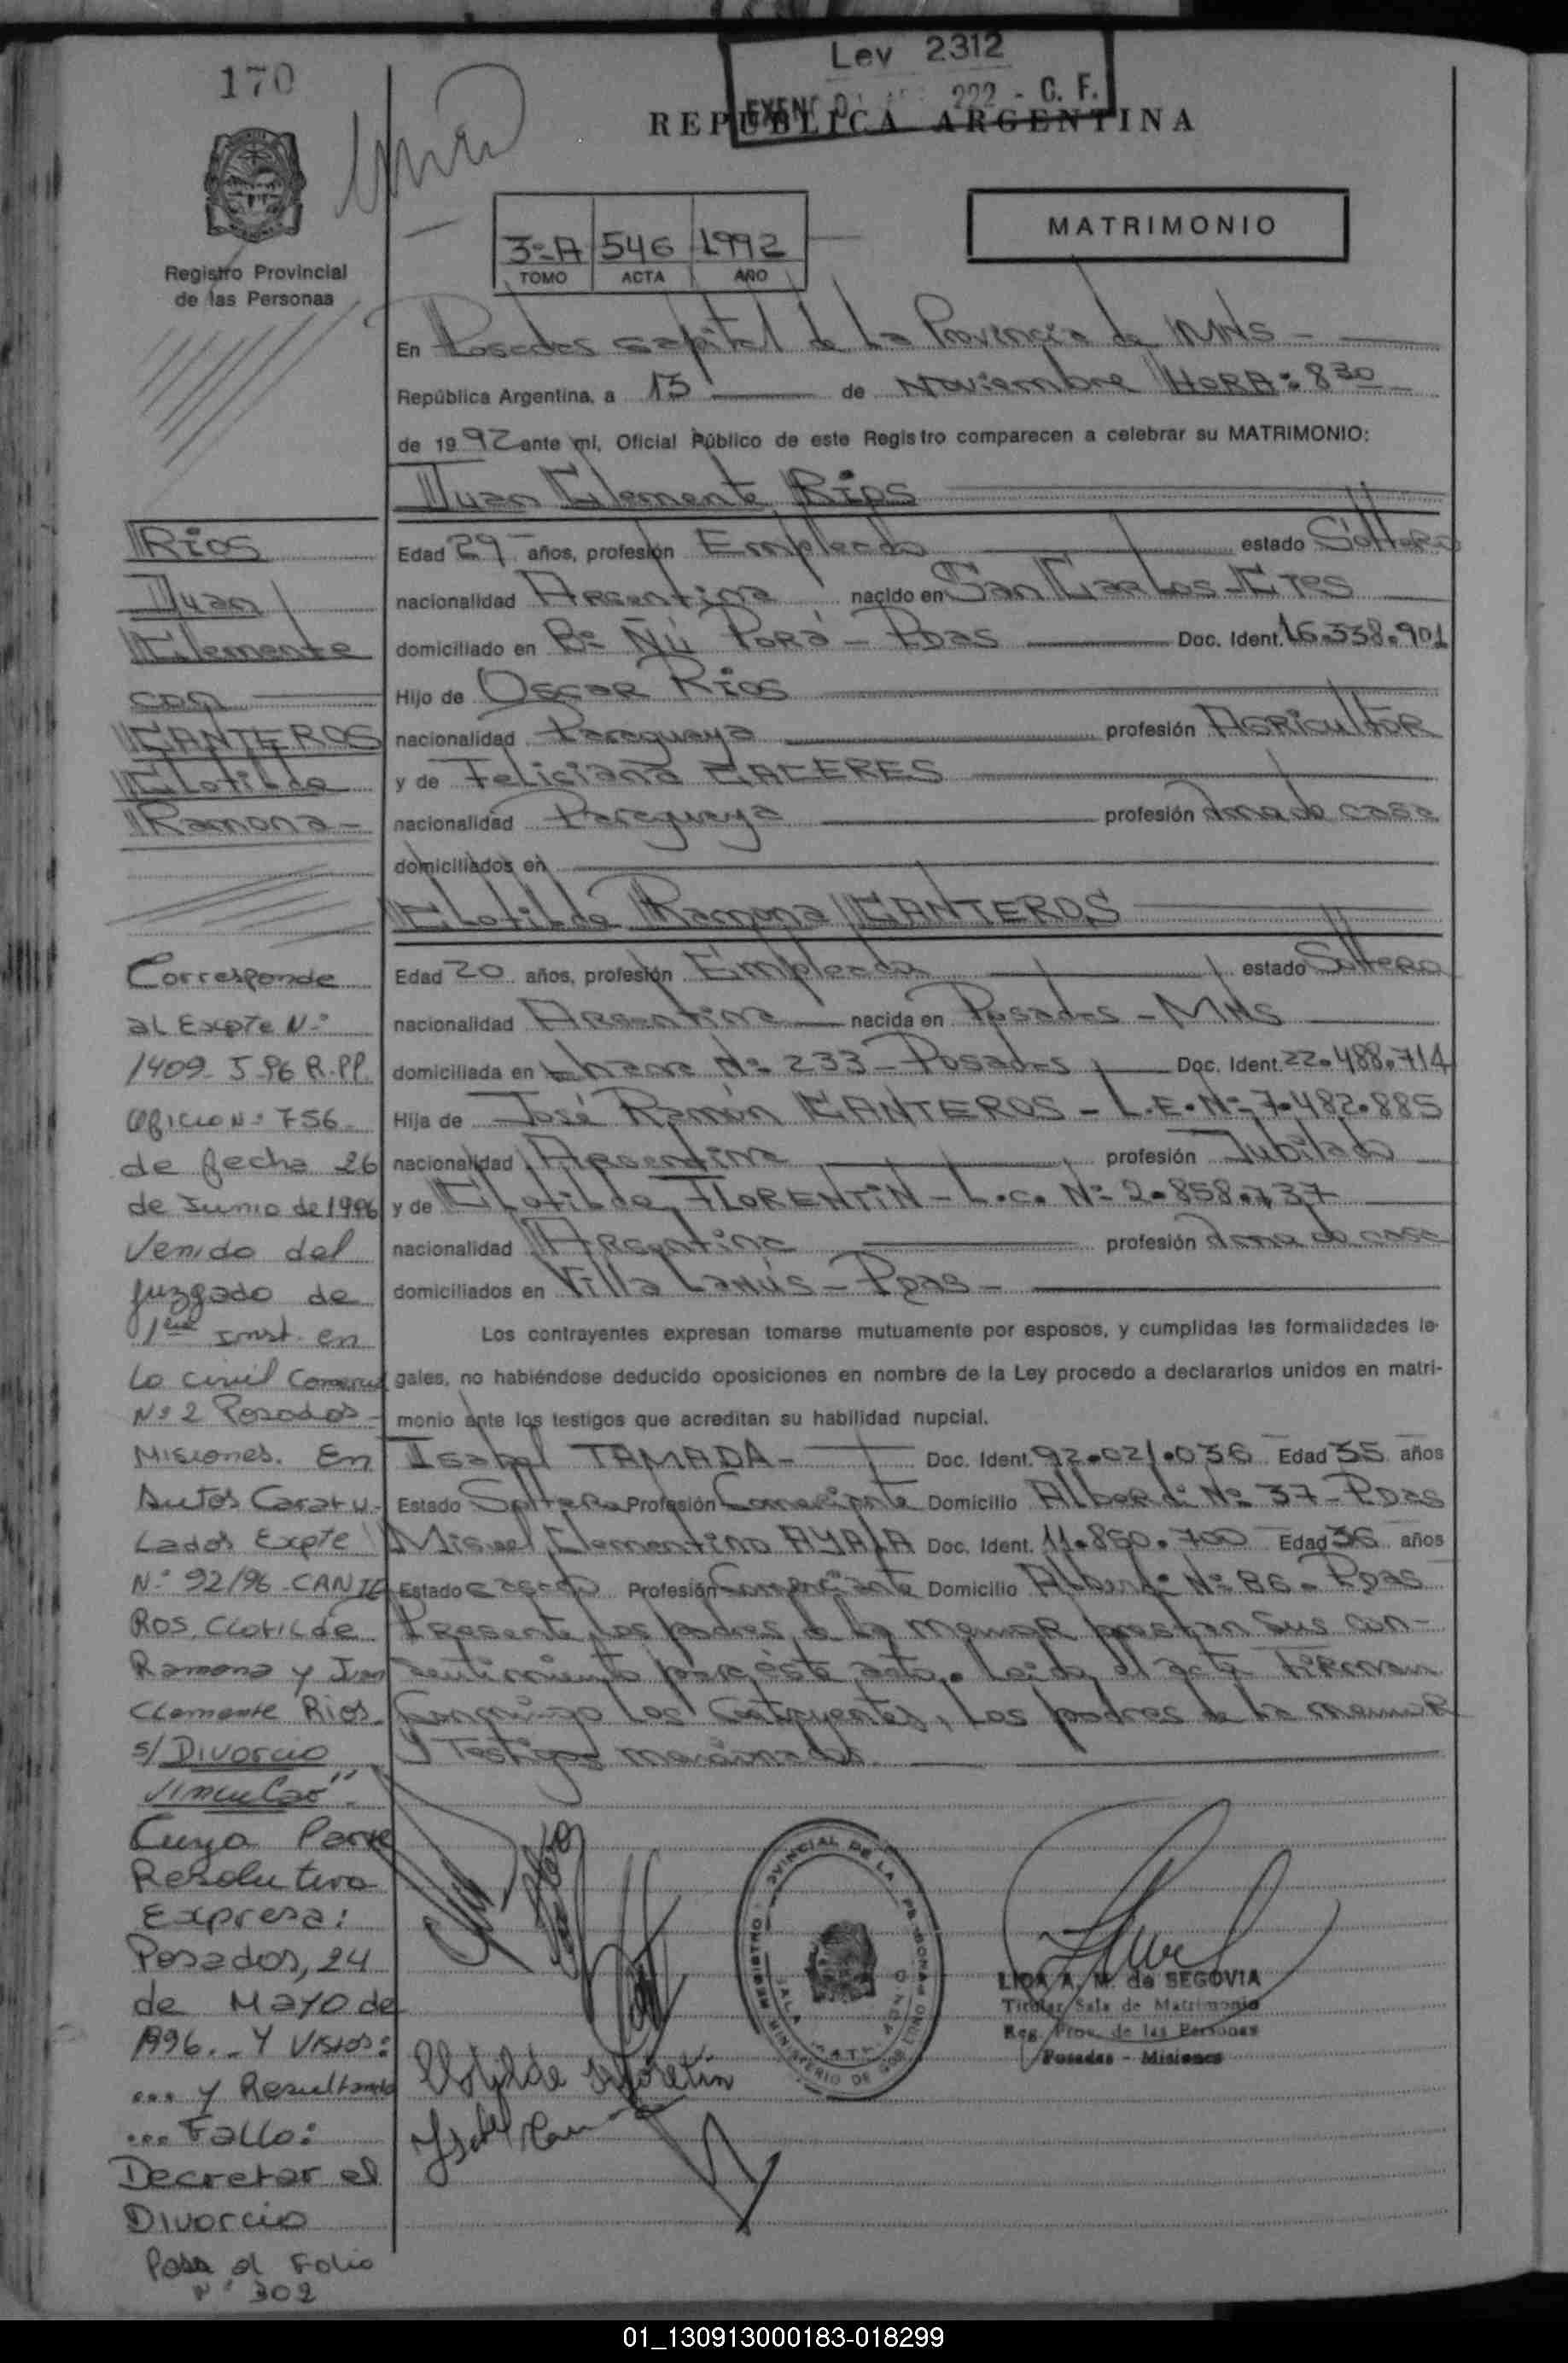 170
Ley 2312
222 - C. F.
REPUBLICA ARGENTINA
Registro Provincial
de las Personas
3º-A 546 1992
TOMO ACTA AÑO
MATRIMONIO
En Posadas capital de La Provincia de MNS -
República Argentina, a 13 de Noviembre HORA: 8 30
de 1992 ante mi, Oficial Público de este Registro comparecen a celebrar su MATRIMONIO:
Juan Clemente Rios
Edad 29 años, profesión Empleado estado Soltero
nacionalidad Argentina nacido en San Carlos - CTES
domiciliado en Bº ÑÚ PORÁ - PDAS Doc. Ident. 16.338.901
Hijo de Oscar Rios
nacionalidad Paraguaya profesión Agricultor
y de Feliciana CACERES
nacionalidad Paraguaya profesión Ama de casa
domiciliados en
Clotilde Ramona CANTEROS
Edad 20 años, profesión Empleada estado Soltera
nacionalidad Argentina nacida en Posadas - MNS
domiciliada en Nº 233 - Posadas Doc. Ident. 22.488.714
Hija de José Ramón CANTEROS - L.E. Nº 7.482.885
nacionalidad Argentina profesión Jubilado
y de Clotilde FLORENTIN - L.C. Nº 2.858.737
nacionalidad Argentina profesión Ama de casa
domiciliados en Villa Lanús - Pdas -
Los contrayentes expresan tomarse mutuamente por esposos, y cumplidas las formalidades le-
gales, no habiéndose deducido oposiciones en nombre de la Ley procedo a declararlos unidos en matri-
monio ante los testigos que acreditan su habilidad nupcial.
Isabel TAMADA - Doc. Ident. 92.021.036 Edad 35 años
Estado Soltera Profesión Comerciante Domicilio Alberdi Nº 37 - PDAS
Miguel Clementino AYALA Doc. Ident. 11.850.700 Edad 36 años
Estado casado Profesión Comerciante Domicilio Alberdi Nº 86 - PDAS
Presente los padres de la menor prestan sus con-
sentimiento para éste acto. Leida el acta Firman
Conmigo los Contrayentes, los padres de la menor
y Testigos mencionados.
Rios
Juan
Clemente
con
CANTEROS
Clotilde
Ramona -
Corresponde
al Expte Nº
1409 - J 96 R.PP.
Oficio Nº 756 -
de fecha 26
de Junio de 1996
Venido del
Juzgado de
1era Inst. en
Lo civil Comercial
Nº 2 Posadas -
Misiones. En
Autos Caratu-
Lados Expte
Nº 92/96 - CANTE
ROS, Clotilde
Ramona y Juan
Clemente Rios -
s/ Divorcio
Vincular" -
Cuya Parte
Resolutiva
Expresa:
Posadas, 24
de Mayo de
1996. - Y Vistos:
... y Resultando
... Fallo:
Decretar el
Divorcio
Pasa al Folio
Nº 302
LIDA A. M. de SEGOVIA
Titular Sala de Matrimonio
Reg. Prov. de las Personas
Posadas - Misiones
Clotilde Floretin
01_130913000183-018299